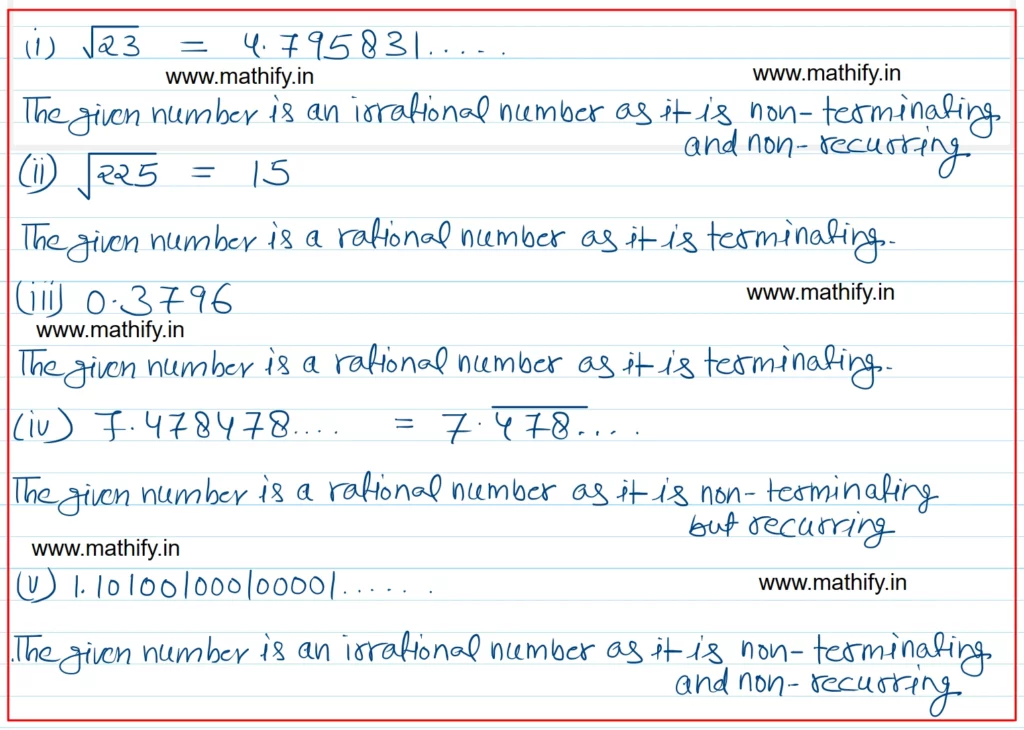 (i) √23 = 4.795831.....
www.mathify.in www.mathify.in
The given number is an irrational number as it is non-terminating
and non-recurring
(ii) √225 = 15
The given number is a rational number as it is terminating.
(iii) 0.3796
www.mathify.in
www.mathify.in
The given number is a rational number as it is terminating.
(iv) 7.478478.... = 7.4̅7̅8̅....
The given number is a rational number as it is non-terminating
but recurring
www.mathify.in
(v) 1.101001000100001......
www.mathify.in
The given number is an irrational number as it is non-terminating
and non-recurring